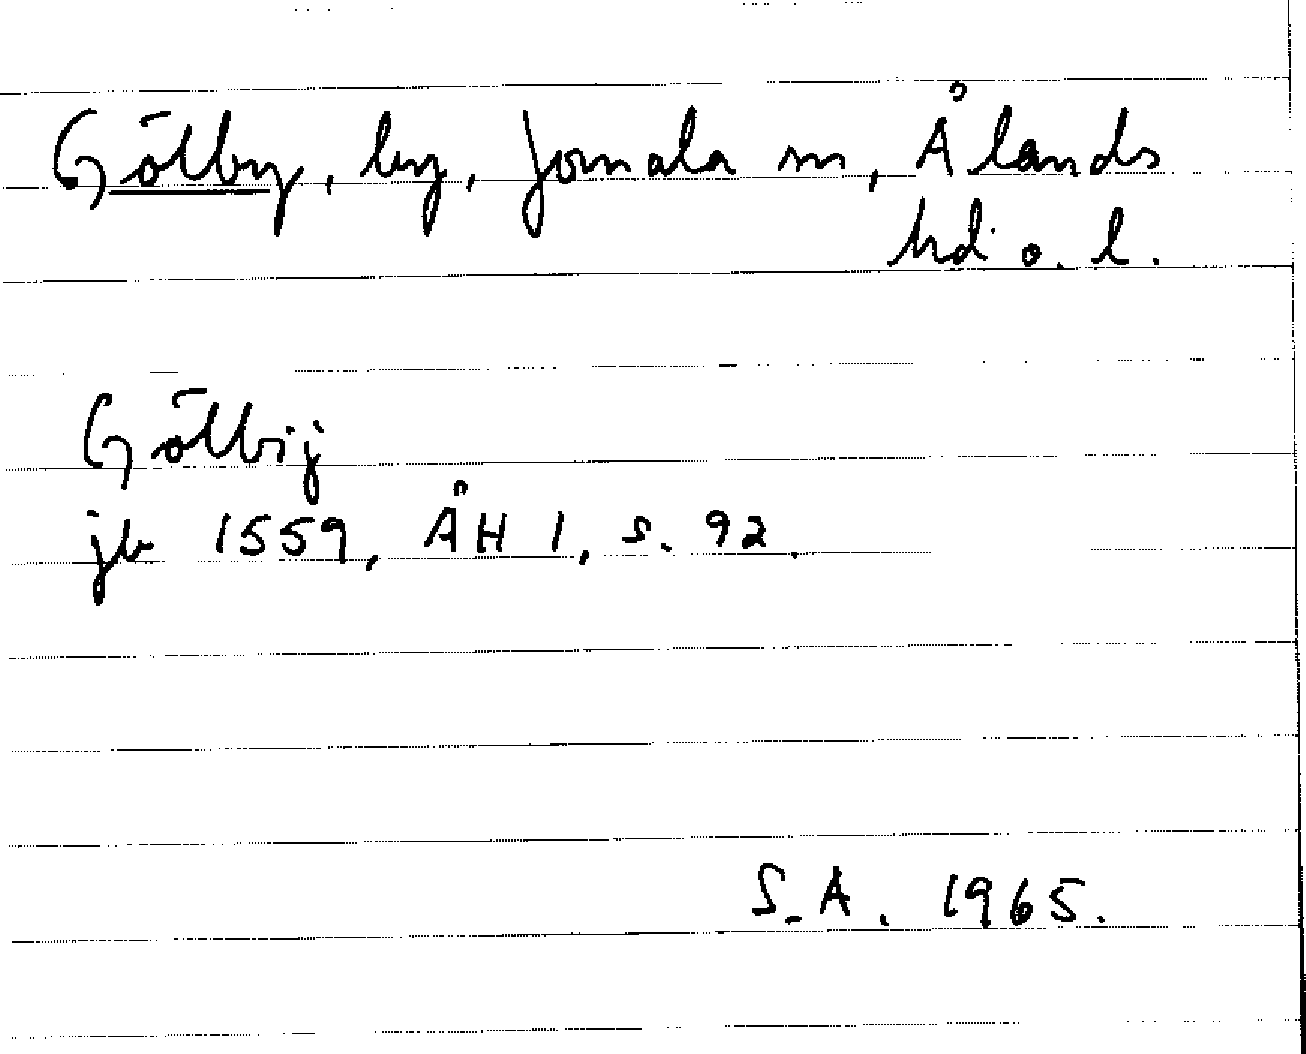 Gölby, by, Jomala sn, Ålands
hd o. l.
Gölbij
jb 1559, ÅH 1, s. 92.
S.A. 1965.